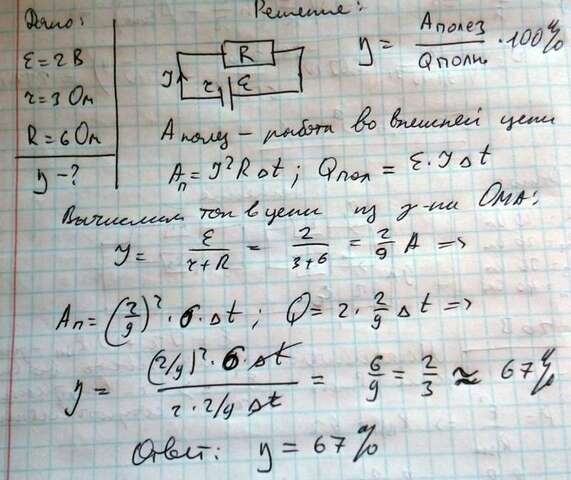 Дано:
ε = 2 В
r = 3 Ом
R = 6 Ом
η - ?
Решение:
R
I r ε
η = Aполез / Qполн · 100%
Aполез – работа во внешней цепи
Aп = I²RΔt; Qпол = ε·IΔt
Вычислим ток в цепи из з-на Ома:
I = ε / (r+R) = 2 / (3+6) = 2/9 A =>
Aп = (2/9)² · 6 · Δt; Q = 2 · 2/9 Δt =>
η = (2/9)² · 6 · Δt / (2 · 2/9 Δt) = 6/9 = 2/3 ≈ 67%
Ответ: η = 67%